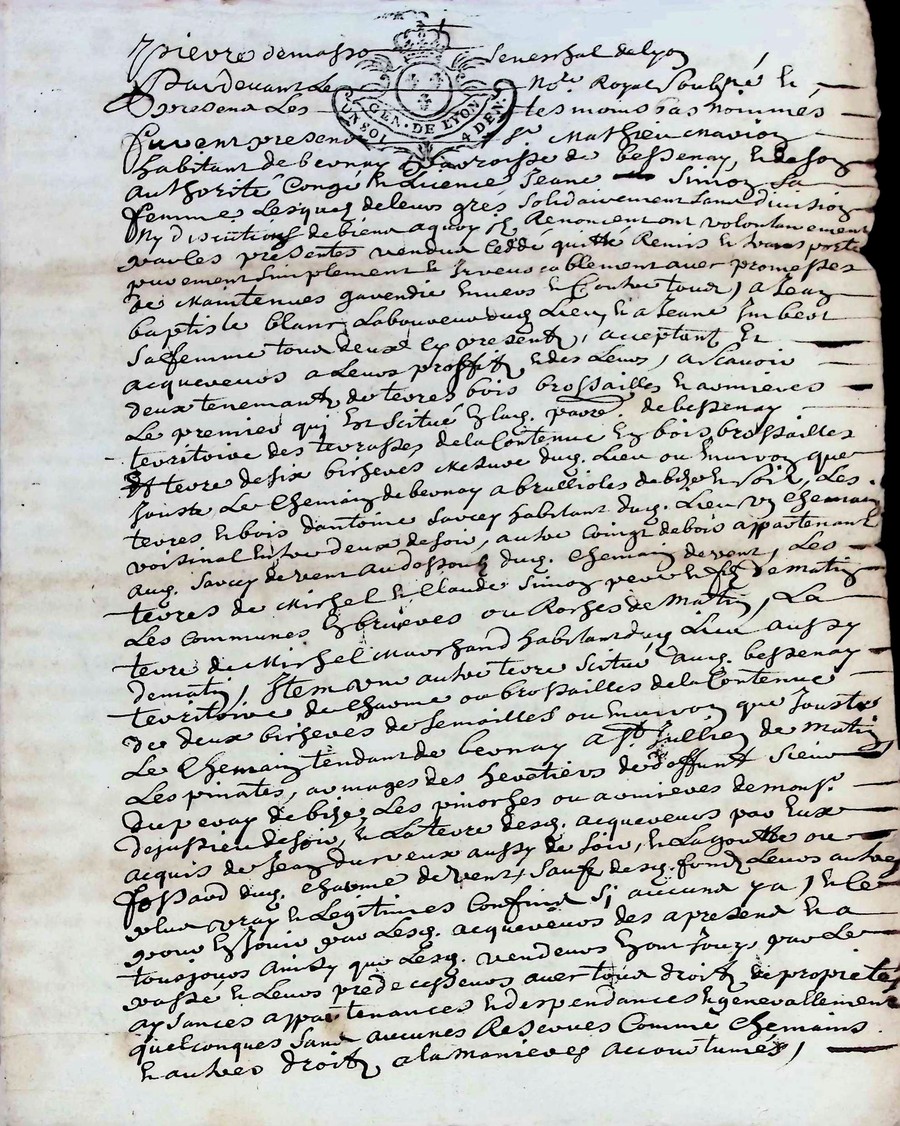 pierre demasso senerchal delyon
Pardevant Le Nore. Royal Soubné &
presend Les tesmoins bas nommés
GEN. DE LYON
UN SOL 4 DEN.
furent presend Sr. Mathieu
habitant de bernay parroisse de bessenay, & de son
authorité Congé & Licence Jeane Simon sa
femme Lesquelz de leurs grés Solidairement sans division
ny discution de biens a quoy ilz Renoncent ont volontairement
par les presentes vendus Ceddé quitté Remis & transporté
purement simplement & Irrevocablement avec promesses
de Maintenues garendie envers & Contre tous, a Jean
baptiste blanc Laboureur dud. Lieu, & a Jeane Imbert
sa femme tous deux cy presentz, acceptant &
acquereurs a Leurs proffitz & des Leurs, ascavoir
deux tenemantz de terres bois brossailles & armieres
Le premier qui est scitué en lad. parre. de bessenay
territoire des terrasses de la Contenue en bois brossailles
& terre de six bicheres Mesure dud. Lieu ou environ que
Jouste Le Chemain de bernay a brullioles de bize & soir, Les
terres & bois d'antoine Sarcey habitant dud. Lieu un Chemain
voisinal entre deux de soir, autre Coingt de bois appartenant
aud. Sarcey de vent au dessous dud. Chemain de vent, Les
terres de Michel & Claude Simon pere & filz de matin
Les communes en bruieres ou Roches de Matin, La
terre de Michel Marchand habitant dud. Lieu aussy
de matin, Item une autre terre scitué aud. bessenay
territoire de Charme ou brossailles de la Contenue
de deux bicheres de semailles ou environ que Jouste
Le Chemain tendant de bernay a St. Jullien de Matin
Les pinates, avmages des heretiers de deffunt sieur
duperay de bize, Les pinorhes ou armieres de monsr.
dejussieu de soir, & La terre desd. acquereurs par Eux
acquis de Jean aussy de soir, & La goutte ou
fossard dud. Charme de vent, sauf desd. fondz Leurs autres
plus vray & Legitimes Confins si aucuns y a, & Ce
pour en Jouir par Lesd. acquereurs des a presend & a
tousjours Ainsy que Lesd. vendeurs En ont Jouy par Le
passé & Leurs predecesseurs avec tous droitz de proprieté
aysances appartenances & dependances & generallement
quelconques sans aucunes Reserves Comme Chemains
& autres droitz a la maniere accoutumés,